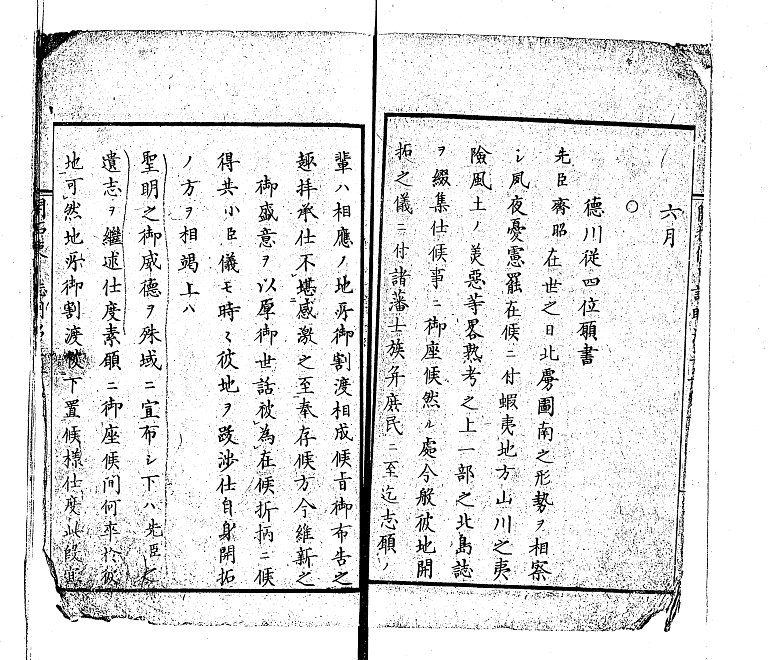 六月
○
德川從四位願書
先臣齊昭在世之日北虜圖南之形勢ヲ相察
シ夙夜憂慮罷在候ニ付蝦夷地方山川之夷
險風土ノ美惡等畧熟考之上一部之北島誌
ヲ綴集仕候事ニ御座候然ル處今般彼地開
拓之儀ニ付諸藩士族并庶民ニ至迄志願ノ
輩ハ相應ノ地所御割渡相成候旨御布告之
趣拝承仕不堪感激之至奉存候方今維新之
御盛意ヲ以厚御世話被為在候折柄ニ候
得共小臣儀モ時々彼地ヲ跋渉仕自身開拓
ノ方ヲ相竭上ハ
聖明之御威德ヲ殊域ニ宣布シ下ハ先臣之
遺志ヲ繼述仕度素願ニ御座候間何卒於彼
地可然地所御割渡被下置候樣仕度此段